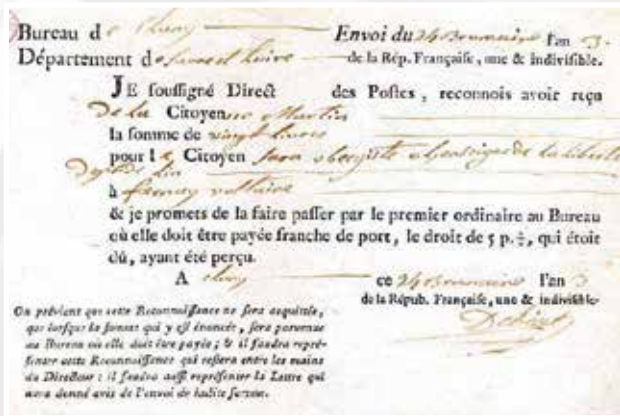 Bureau de Cluny Envoi du 24 Brumaire l'an 3.
Département de Saone et Loire de la Rép. Française, une & indivisible.
JE souſſigné Direct des Poſtes, reconnois avoir reçu
De la Citoyenne Martin
la ſomme de vingt livres
pour l Citoyen
à fernay voltaire
& je promets de la faire paſſer par le premier ordinaire au Bureau
où elle doit être payée franche de port, le droit de 5 p. %, qui étoit
dû, ayant été perçu.
A cluny ce 24 Brumaire l'an 3
de la Répub. Françaiſe, une & indiviſible.
On prévient que cette Reconnoiſſance ne ſera acquittée,
que lorſque la ſomme qui y eſt énoncée, ſera parvenue
au Bureau où elle doit être payée ; & il faudra repré-
ſenter cette Reconnoiſſance qui reſtera entre les mains
du Directeur : il faudra auſſi repréſenter la Lettre qui
aura donné avis de l'envoi de ladite ſomme.